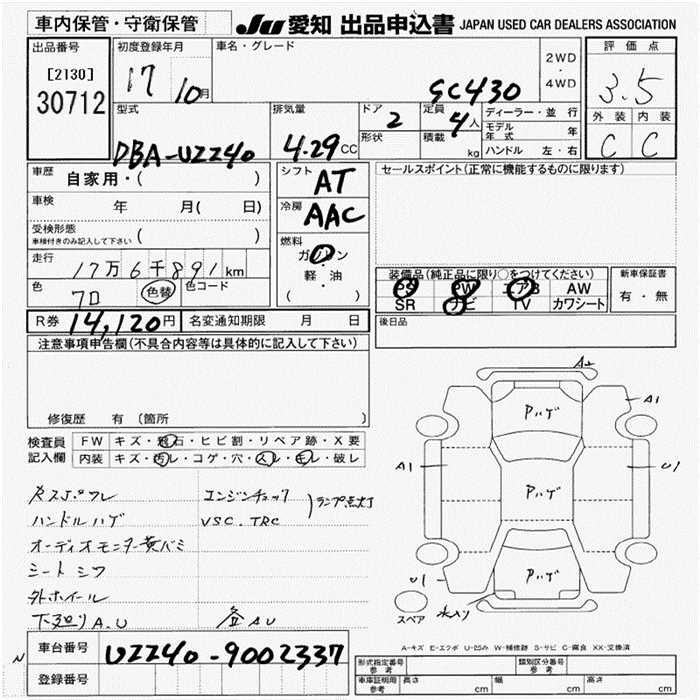 車内保管・守衛保管 JU 愛知 出品申込書 JAPAN USED CAR DEALERS ASSOCIATION
出品番号 初度登録年月 車名・グレード 2WD ・ 4WD 評価点
[2130]
30712 17 10月 SC430 3.5
型式 排気量 ドア 2 定員 4人 ディーラー・並行 外装 内装
形状 積載 kg モデル年式 年
DBA-UZZ40 4.29CC ハンドル 左・右 C C
車歴 自家用・( ) シフト AT セールスポイント(正常に機能するものに限ります)
車検 年 月( 日) 冷房 AAC
受検形態 ( )
車検付きのみ記入して下さい
燃料
ガソリン
走行 17万6千891km 軽・油 装備品(純正品に限り○をつけてください) 新車保証書
色 色替 色コード ( ) PS PW エアB AW 有・無
SR ナビ TV カワシート
R券 14,120円 名変通知期限 月 日 後日品
注意事項申告欄(不具合内容等は具体的に記入して下さい)
修復歴 有 〔箇所 〕
検査員 FW キズ・飛石・ヒビ割・リペア跡・X要
記入欄 内装 キズ・汚レ・コゲ・穴・スレ・キレ・破レ
エンジンチェック
ランプ点灯
ハンドルハゲ VSC.TRC
オーディオモニター黄バミ
シートシワ
外ホイール
下廻りA.U
A1
Pハゲ
A1 U1
Pハゲ
Pハゲ
U1
スペア
A-キズ E-エクボ U-凹み W-補修跡 S-サビ C-腐食 XX-交換済
車台番号 UZZ40-9002337
登録番号
形式指定番号 参考 類別区分番号 参考
車庫証明用 参考 長さ cm 幅 cm 高さ cm